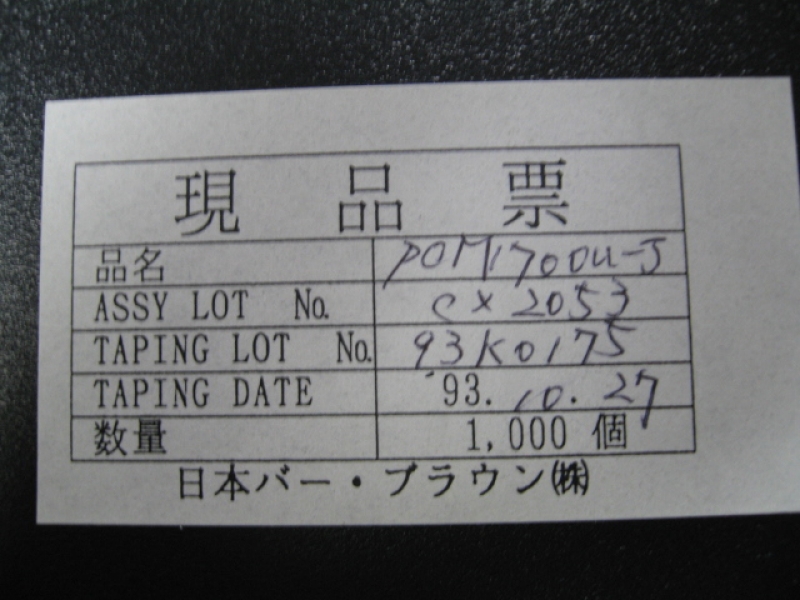 現品票
品名 PCM1700U-J
ASSY LOT No. CX2053
TAPING LOT No. 93K0175
TAPING DATE '93.10.27
数量 1,000 個
日本バー・ブラウン㈱